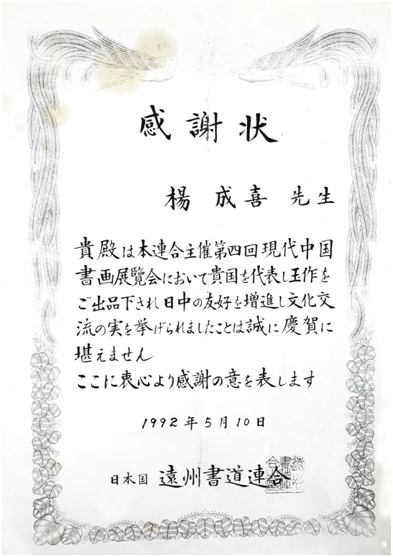 感謝状
楊 成喜 先生
貴殿は本連合主催第四回現代中国
書画展覧会において貴国を代表し玉作を
ご出品下され日中の友好を増進し文化交
流の実を挙げられましたことは誠に慶賀に
堪えません
ここに衷心より感謝の意を表します
1992年5月10日
日本国 遠州書道連合